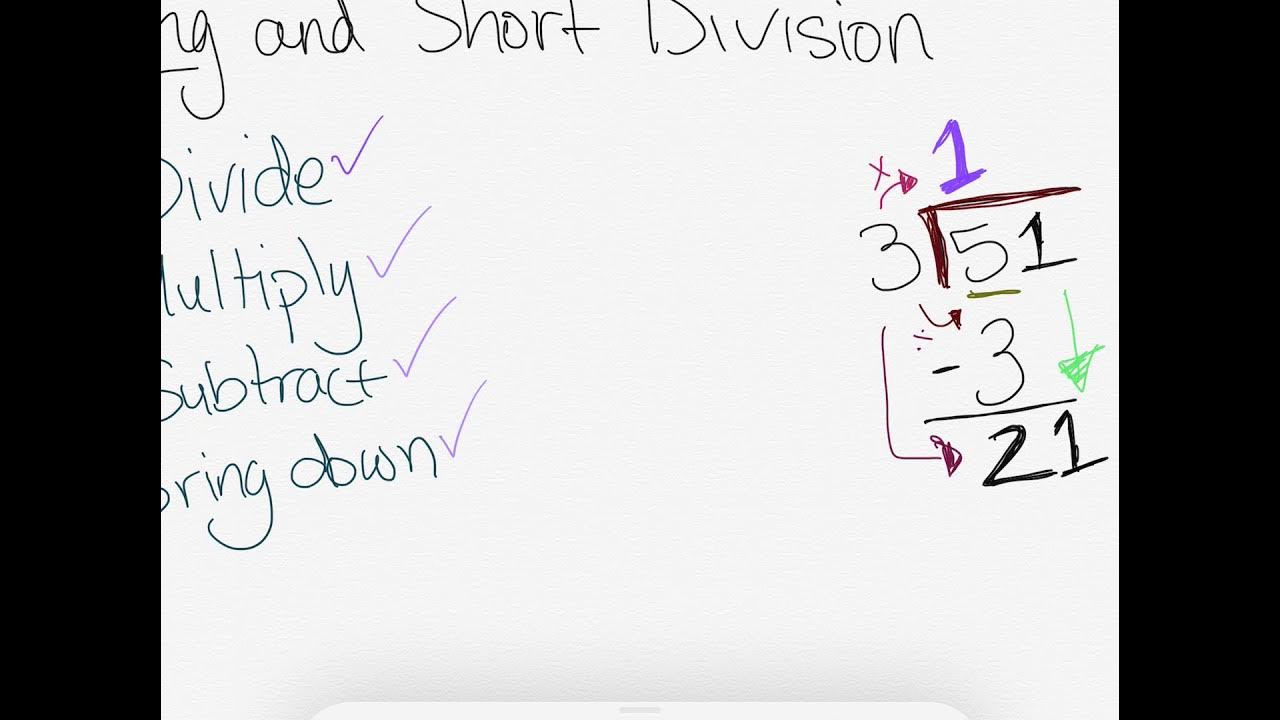 ng and Short Division
Divide ✓
Multiply ✓
Subtract ✓
bring down ✓
1
×
3 51
÷
- 3
21